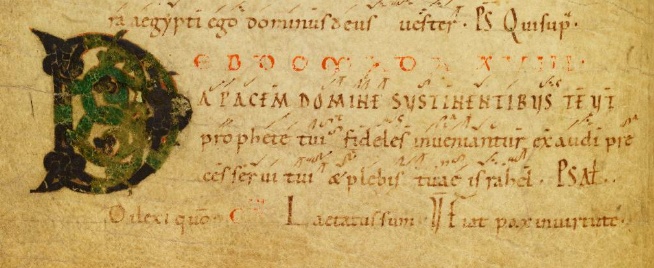 ra aegypti ego dominus deus uester. PS Quisup.
EBDOMADA XVIIII.
DA PACEM DOMINE SUSTINENTIBUS TE UT
prophete tui fideles inueniantur exaudi pre
ces serui tui & plebis tuae israhel. PSAL.
Dilexi quō C Laetatus sum V fiat pax in uirtute